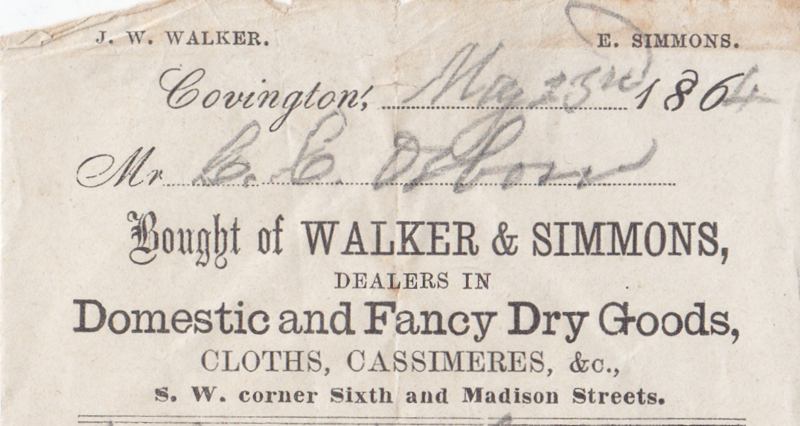 J. W. WALKER. E. SIMMONS.
Covington, May 23rd 1864
Mr C. C. Osborn
Bought of WALKER & SIMMONS,
DEALERS IN
Domestic and Fancy Dry Goods,
CLOTHS, CASSIMERES, &c.,
S. W. corner Sixth and Madison Streets.